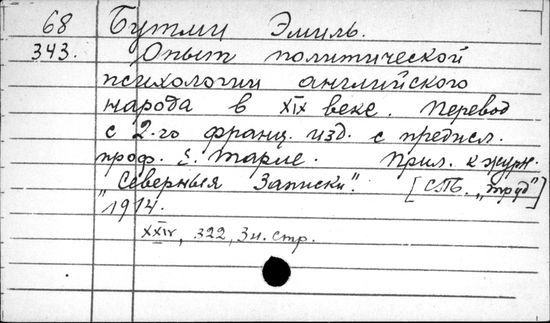 68 Бутми Эмиль.
343. Опыт политической
психологии английского
народа в XIX веке. Перевод
с 2-го франц. изд. с предисл.
проф. Е. Тарле. Прил. к журн.
"Северныя Записки". [СПБ. "Труд"]
1914.
XXIV, 322, 3 н. стр.